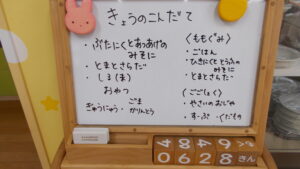 きょうのこんだて
・ぶたにくとあつあげの
みそに
・とまとさらだ
・しる(ま)
おやつ
ぎゅうにゅう・ごま
かりんとう
<ももぐみ>
・ごはん
・ひきにくととうふの
みそに
・とまとさらだ
(ごごしょく)
・やさいのおじや
・すーぷ・くだもの